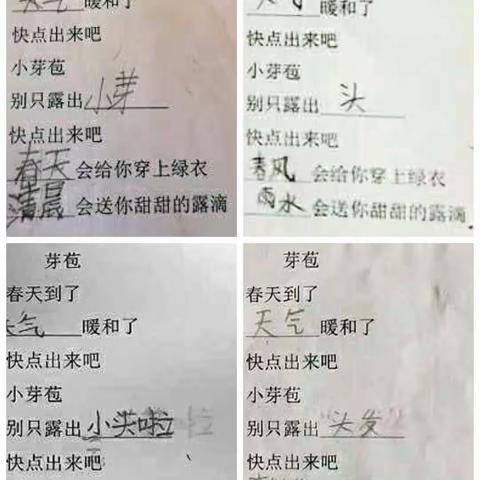 天气暖和了
快点出来吧
小芽苞
别只露出小芽
快点出来吧
春天会给你穿上绿衣
清晨会送你甜甜的露滴
天气暖和了
快点出来吧
小芽苞
别只露出头
快点出来吧
春风会给你穿上绿衣
雨水会送你甜甜的露滴
芽苞
春天到了
天气暖和了
快点出来吧
小芽苞
别只露出小头啦
快点出来吧
芽苞
春天到了
天气暖和了
快点出来吧
小芽苞
别只露出"头发"
快点出来吧